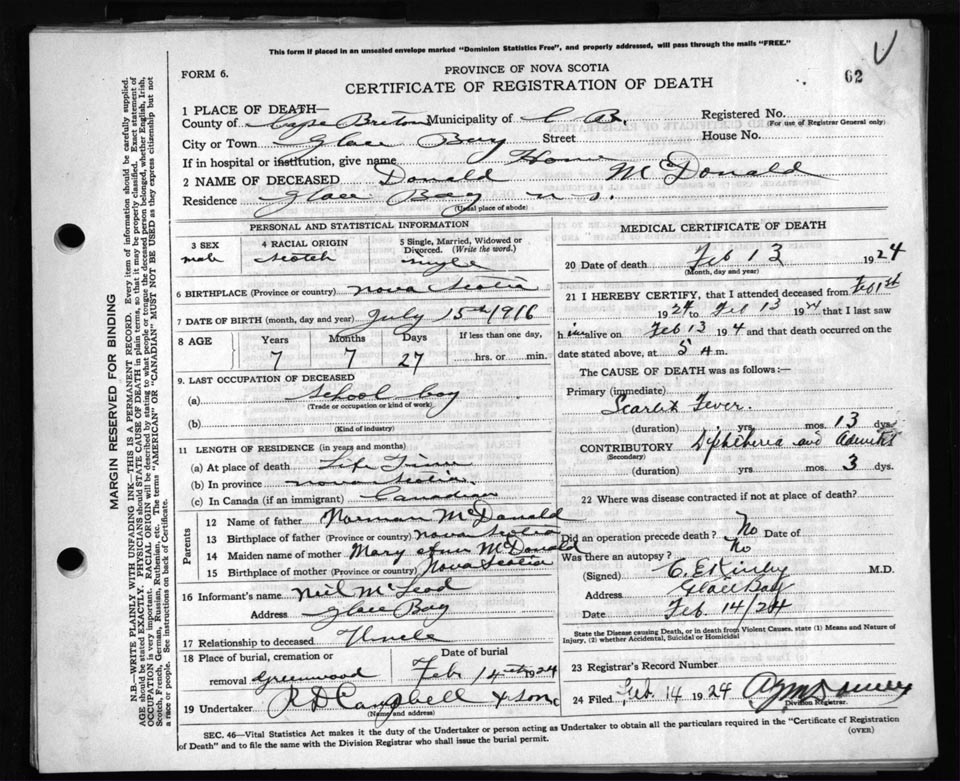 This form if placed in an unsealed envelope marked "Dominion Statistics Free", and properly addressed, will pass through the mails "FREE."
FORM 6.
PROVINCE OF NOVA SCOTIA
62
CERTIFICATE OF REGISTRATION OF DEATH
1 PLACE OF DEATH—
County of Cape Breton Municipality of C. B. Registered No.
(For use of Registrar General only)
City or Town Glace Bay Street House No.
If in hospital or institution, give name Home
2 NAME OF DECEASED Donald McDonald
Residence Glace Bay N S.
(Usual place of abode)
PERSONAL AND STATISTICAL INFORMATION
3 SEX 4 RACIAL ORIGIN 5 Single, Married, Widowed or Divorced. (Write the word.)
male Scotch single
6 BIRTHPLACE (Province or country) Nova Scotia
7 DATE OF BIRTH (month, day and year) July 15th 1916
8 AGE Years Months Days If less than one day,
7 7 27 hrs. or min.
9. LAST OCCUPATION OF DECEASED
(a) School boy
(Trade or occupation or kind of work)
(b)
(Kind of industry)
11 LENGTH OF RESIDENCE (in years and months)
(a) At place of death Life Time
(b) In province Nova Scotia
(c) In Canada (if an immigrant) Canadian
Parents
12 Name of father Norman McDonald
13 Birthplace of father (Province or country) Nova Scotia
14 Maiden name of mother Mary Ann McDonald
15 Birthplace of mother (Province or country) Nova Scotia
16 Informant's name Neil McLeod
Address Glace Bay
17 Relationship to deceased Uncle
18 Place of burial, cremation or removal Greenwood Date of burial Feb 14th 1924
19 Undertaker R D Campbell & Son
(Name and address)
MEDICAL CERTIFICATE OF DEATH
20 Date of death Feb 13 1924
(Month, day and year)
21 I HEREBY CERTIFY, that I attended deceased from Feb 1st
1924 to Feb 13 192 4 that I last saw
h im alive on Feb 13 19 4 and that death occurred on the
date stated above, at 5 a m.
The CAUSE OF DEATH was as follows:—
Primary (immediate)
Scarlet Fever.
(duration) yrs. mos. 13 dys.
CONTRIBUTORY Diphtheria and
(Secondary)
(duration) yrs. mos. 3 dys.
22 Where was disease contracted if not at place of death?
Did an operation precede death? No Date of
Was there an autopsy? No
(Signed) M.D.
Address Glace Bay
Date Feb 14/24
State the Disease causing Death, or in death from Violent Causes, state (1) Means and Nature of
Injury, (2) whether Accidental, Suicidal or Homicidal
23 Registrar's Record Number
24 Filed Feb. 14 1924
Division Registrar.
SEC. 46—Vital Statistics Act makes it the duty of the Undertaker or person acting as Undertaker to obtain all the particulars required in the "Certificate of Registration
of Death" and to file the same with the Division Registrar who shall issue the burial permit.
(OVER)
MARGIN RESERVED FOR BINDING
N.B.—WRITE PLAINLY WITH UNFADING INK—THIS IS A PERMANENT RECORD. Every item of information should be carefully supplied.
AGE should be stated EXACTLY. PHYSICIANS should STATE CAUSE OF DEATH in plain terms, so that it may be properly classified. Exact statement of
OCCUPATION is very important. RACIAL ORIGIN will be described by stating to what people or tongue the deceased person belonged, whether English, Irish,
Scotch, French, German, Russian, Ruthenian, etc. The terms "AMERICAN" or "CANADIAN" MUST NOT BE USED as they express citizenship but not
a race or people. See instructions on back of Certificate.